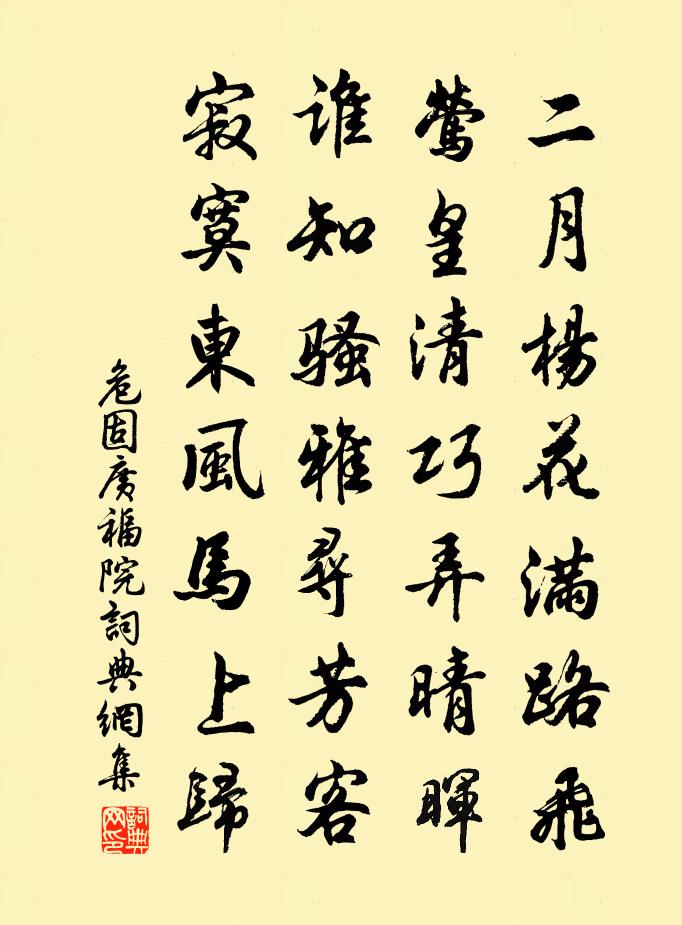 二月楊花滿路飛
鶯皇清巧弄晴暉
誰知騷雅尋芳客
寂寞東風馬上歸
危固廣福院詞典網集
詞典網印